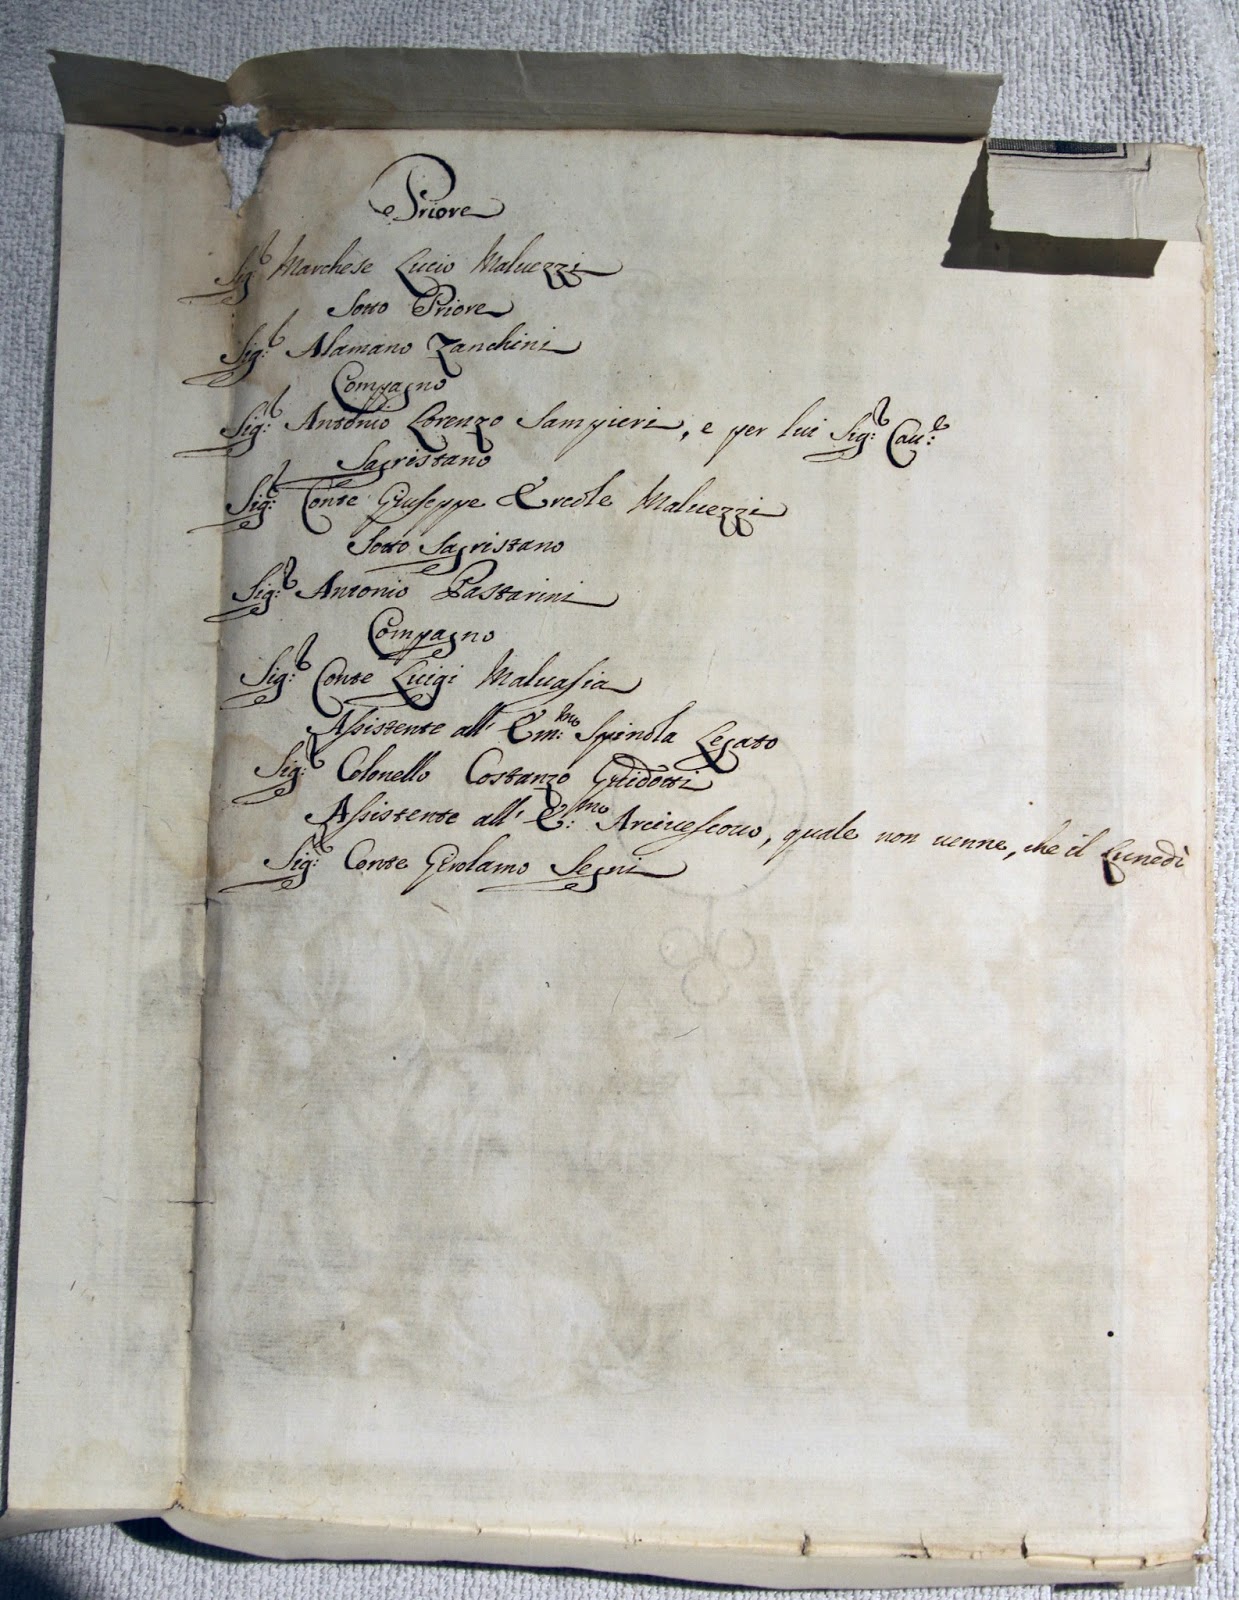 Priore
Sig.r Marchese Lucio Maluezzi
Sotto Priore
Sig.r Alamano Zanchini
Compagno
Sig.r Antonio Lorenzo Sampieri, e per lui Sig.r Cau.re
Sagristano
Sig.r Conte Giuseppe Ercole Maluezzi
Sotto Sagristano
Sig.r Antonio Pastarini
Compagno
Sig.r Conte Luigi Maluasia
Assistente all' Em.mo Spinola Legato
Sig.r Colonello Costanzo Guidotti
Assistente all' E.mo Arciuescouo, quale non uenne, che il Lunedì
Sig.r Conte Girolamo Segni